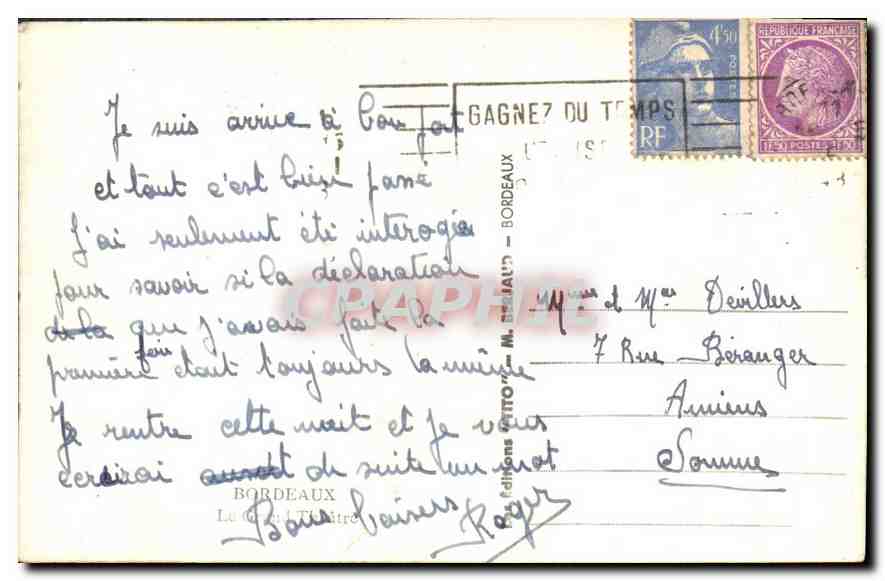 Je suis arrivé à bon port
et tout c'est bien passé
J'ai seulement été interogée
pour savoir si la déclaration
de la que j'avais faite la
première fois était toujours la même
Je rentre cette nuit et je vous
écrirai aussitôt de suite un mot
Bons baisers Roger
BORDEAUX
Le Grand Théâtre
Les Éditions "VITO" — M. BERJAUD — BORDEAUX
GAGNEZ DU TEMPS
4f50
POSTES
RF
RÉPUBLIQUE FRANÇAISE
1f50 POSTES 1f50
CPAPHIL
Mme et Mer Devillers
7 Rue Béranger
Amiens
Somme